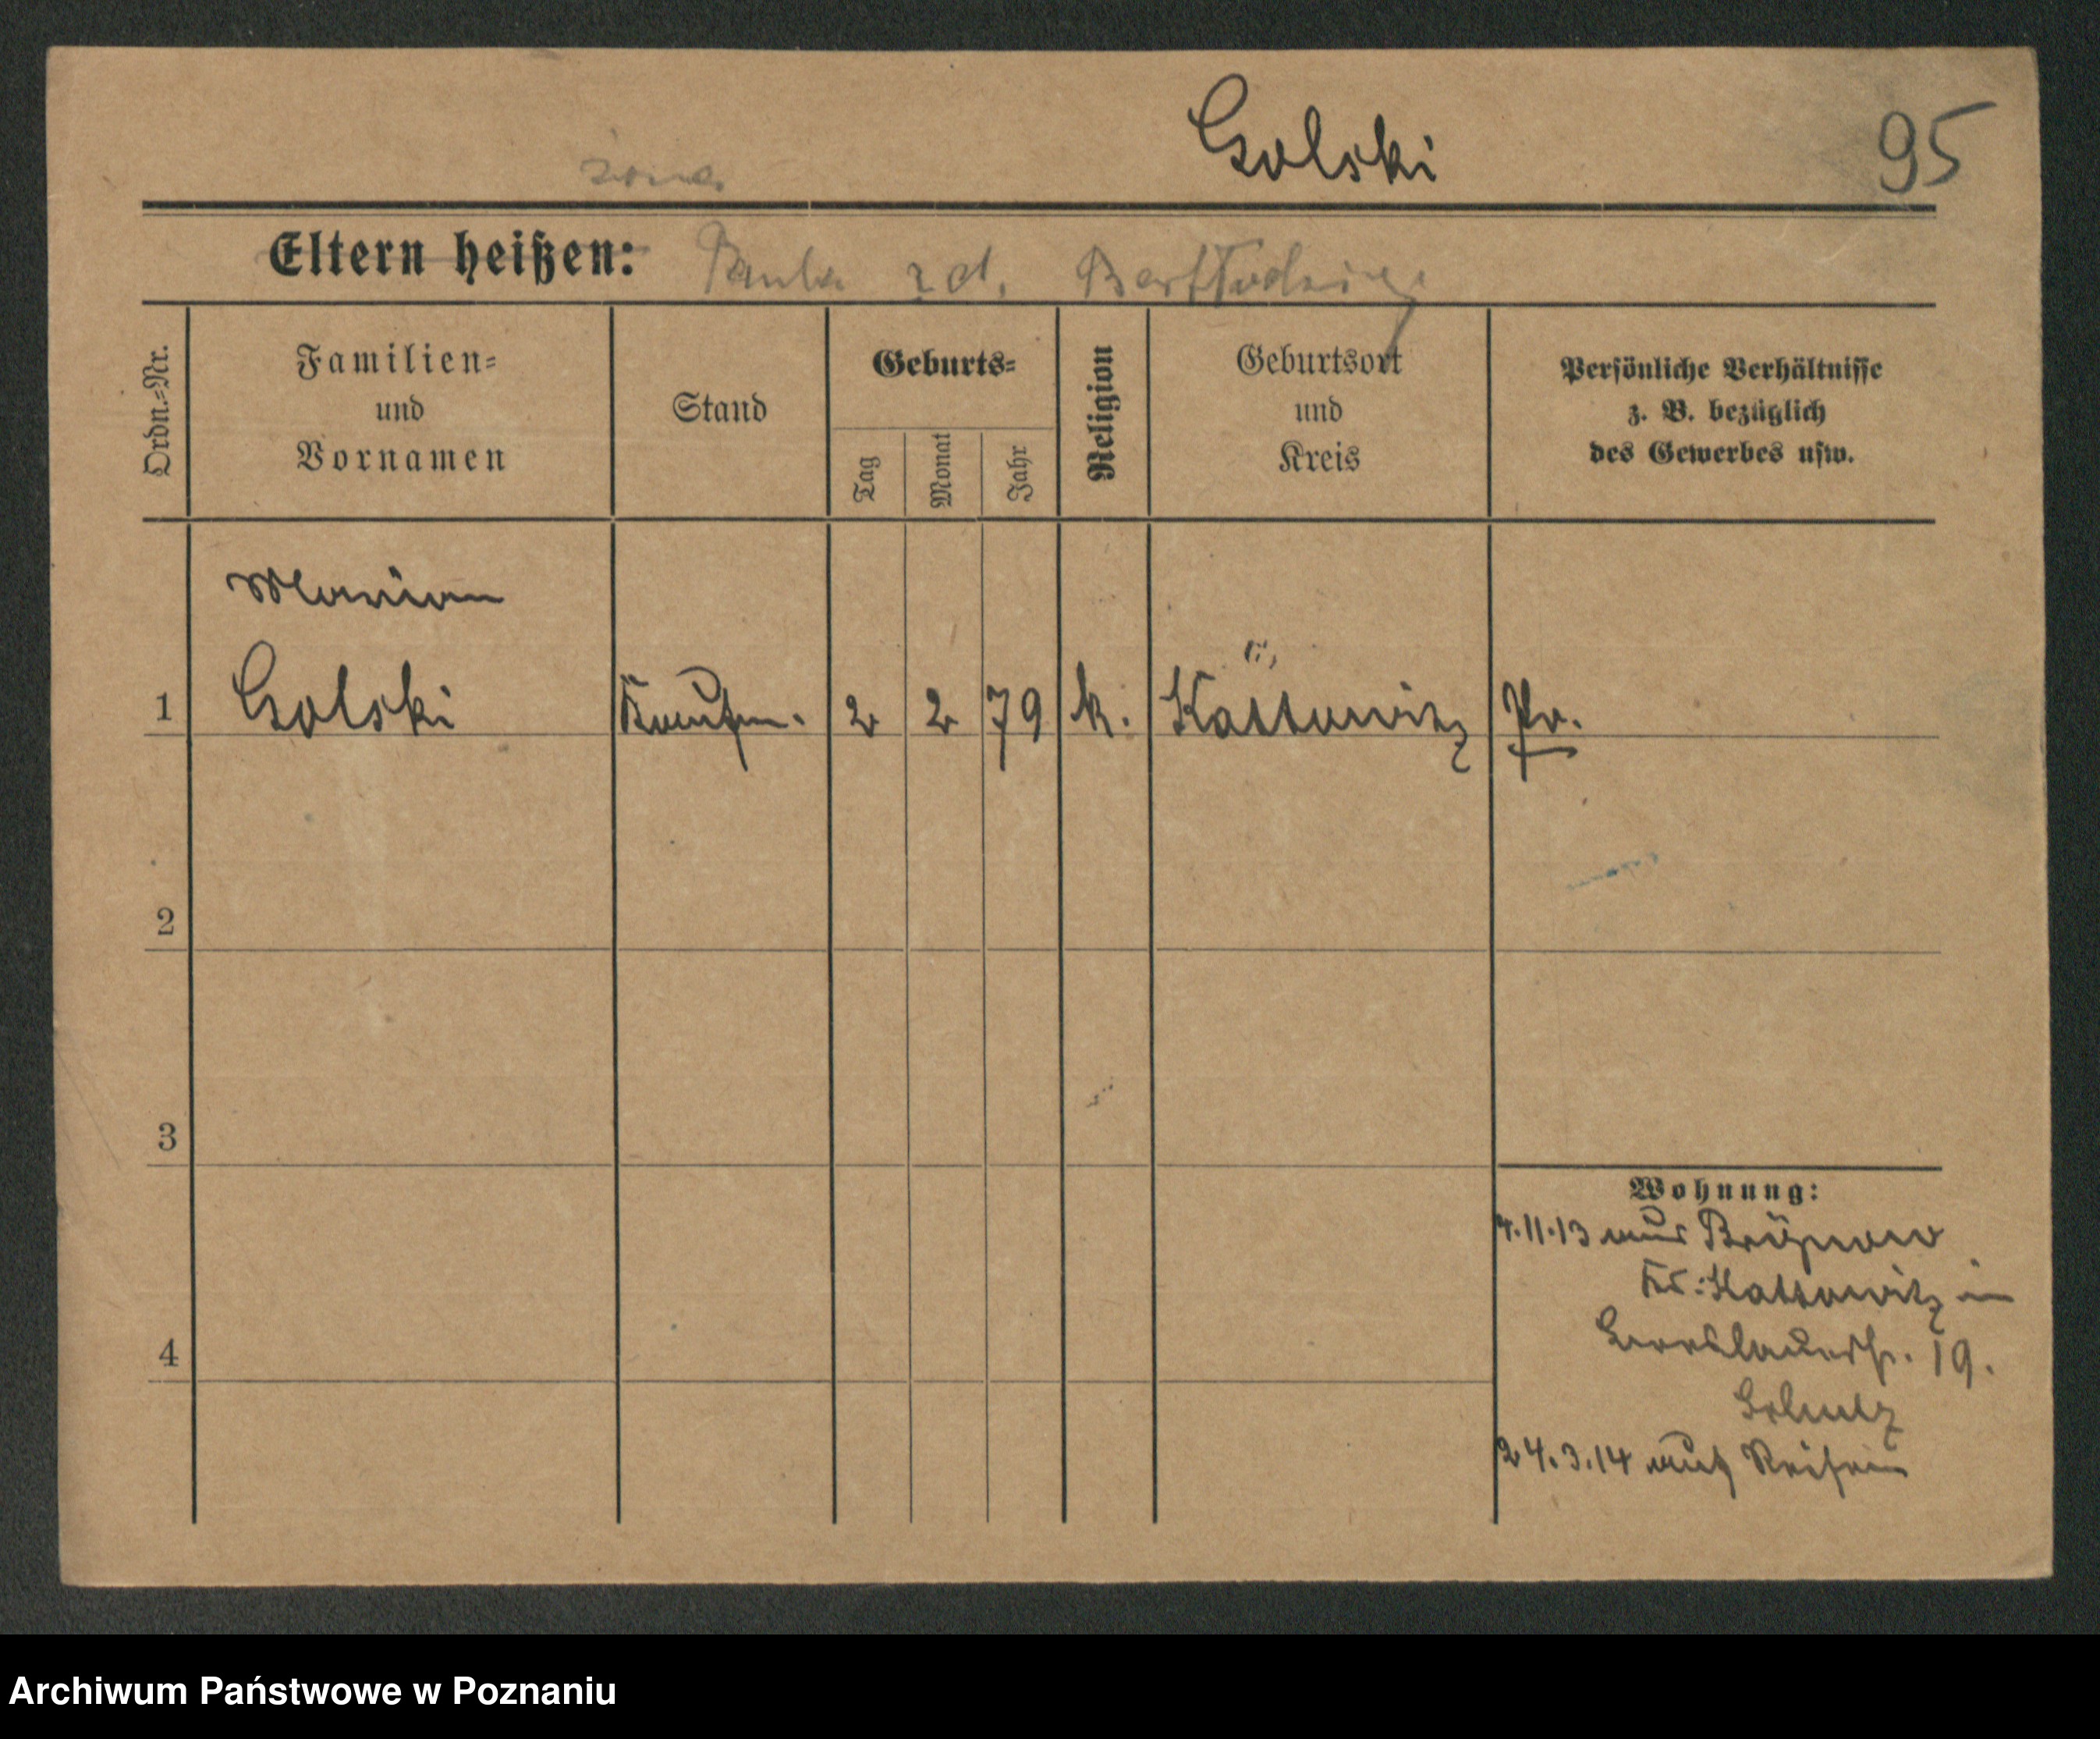 Golski
95
żona
Eltern heißen: Paula z d.
Ordn.-Nr.
Familien-
und
Vornamen
Stand
Geburts-
Tag
Monat
Jahr
Religion
Geburtsort
und
Kreis
Persönliche Verhältnisse
z. B. bezüglich
des Gewerbes usw.
Marian
1 Golski Kaufm. 2 2 79 k. Kattowitz Pr.
2
3
4
Wohnung:
4.11.13 aus
Kr. Kattowitz in
Breslauerstr. 19.
24.3.14 auf Reisen
Archiwum Państwowe w Poznaniu